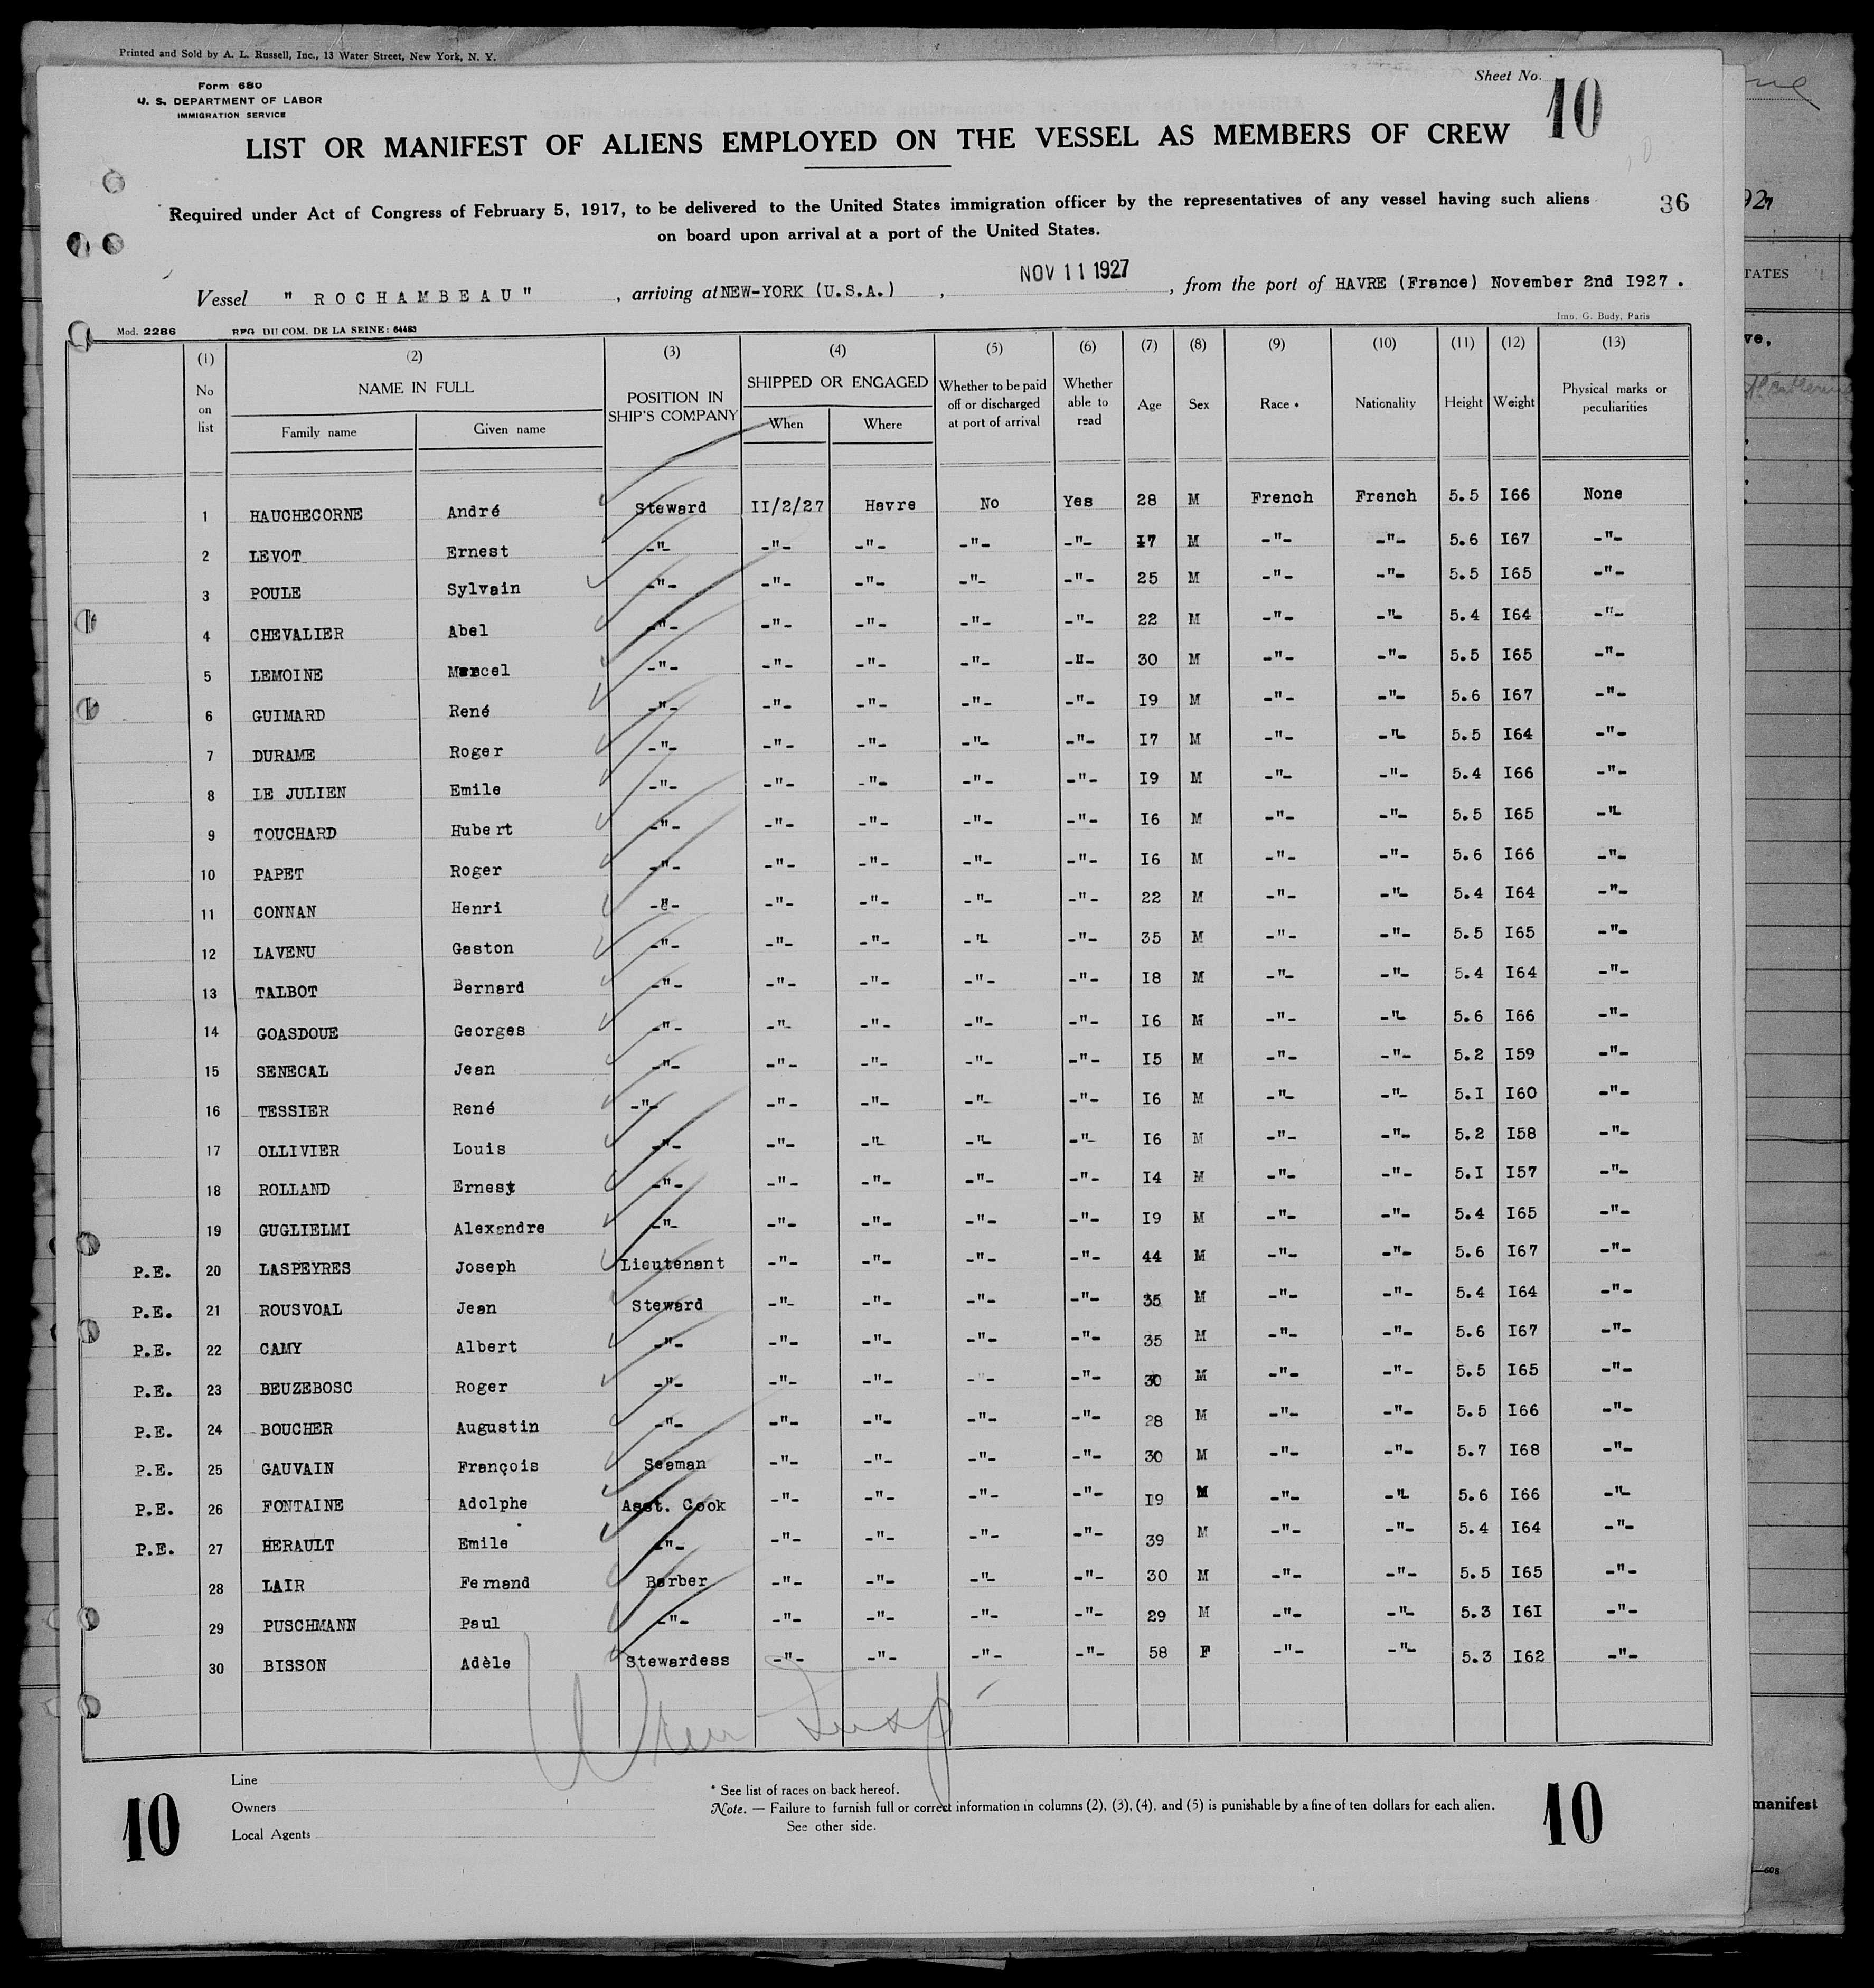 Printed and Sold by A. L. Russell, Inc., 13 Water Street, New York, N. Y.
Form 680
U. S. DEPARTMENT OF LABOR
IMMIGRATION SERVICE
Sheet No. 10
LIST OR MANIFEST OF ALIENS EMPLOYED ON THE VESSEL AS MEMBERS OF CREW
Required under Act of Congress of February 5, 1917, to be delivered to the United States immigration officer by the representatives of any vessel having such aliens
on board upon arrival at a port of the United States.
36
Vessel "ROCHAMBEAU", arriving at NEW-YORK (U.S.A.), NOV 11 1927, from the port of HAVRE (France) November 2nd I927.
Mod. 2286 REG. DU COM. DE LA SEINE: 64483 Imp. G. Budy, Paris
(1) (2) (3) (4) (5) (6) (7) (8) (9) (10) (11) (12) (13)
No on list NAME IN FULL POSITION IN SHIP'S COMPANY SHIPPED OR ENGAGED Whether to be paid off or discharged at port of arrival Whether able to read Age Sex Race * Nationality Height Weight Physical marks or peculiarities
Family name Given name When Where
1 HAUCHECORNE André Steward II/2/27 Havre No Yes 28 M French French 5.5 I66 None
2 LEVOT Ernest -"- -"- -"- -"- -"- I7 M -"- -"- 5.6 I67 -"-
3 POULE Sylvain -"- -"- -"- -"- -"- 25 M -"- -"- 5.5 I65 -"-
4 CHEVALIER Abel -"- -"- -"- -"- -"- 22 M -"- -"- 5.4 I64 -"-
5 LEMOINE Marcel -"- -"- -"- -"- -"- 30 M -"- -"- 5.5 I65 -"-
6 GUIMARD René -"- -"- -"- -"- -"- I9 M -"- -"- 5.6 I67 -"-
7 DURAME Roger -"- -"- -"- -"- -"- I7 M -"- -"- 5.5 I64 -"-
8 LE JULIEN Emile -"- -"- -"- -"- -"- I9 M -"- -"- 5.4 I66 -"-
9 TOUCHARD Hubert -"- -"- -"- -"- -"- I6 M -"- -"- 5.5 I65 -"-
10 PAPET Roger -"- -"- -"- -"- -"- I6 M -"- -"- 5.6 I66 -"-
11 CONNAN Henri -"- -"- -"- -"- -"- 22 M -"- -"- 5.4 I64 -"-
12 LAVENU Gaston -"- -"- -"- -"- -"- 35 M -"- -"- 5.5 I65 -"-
13 TALBOT Bernard -"- -"- -"- -"- -"- I8 M -"- -"- 5.4 I64 -"-
14 GOASDOUE Georges -"- -"- -"- -"- -"- I6 M -"- -"- 5.6 I66 -"-
15 SENECAL Jean -"- -"- -"- -"- -"- I5 M -"- -"- 5.2 I59 -"-
16 TESSIER René -"- -"- -"- -"- -"- I6 M -"- -"- 5.I I60 -"-
17 OLLIVIER Louis -"- -"- -"- -"- -"- I6 M -"- -"- 5.2 I58 -"-
18 ROLLAND Ernest -"- -"- -"- -"- -"- I4 M -"- -"- 5.I I57 -"-
19 GUGLIELMI Alexandre -"- -"- -"- -"- -"- I9 M -"- -"- 5.4 I65 -"-
P.E. 20 LASPEYRES Joseph Lieutenant -"- -"- -"- -"- 44 M -"- -"- 5.6 I67 -"-
P.E. 21 ROUSVOAL Jean Steward -"- -"- -"- -"- 35 M -"- -"- 5.4 I64 -"-
P.E. 22 CAMY Albert -"- -"- -"- -"- -"- 35 M -"- -"- 5.6 I67 -"-
P.E. 23 BEUZEBOSC Roger -"- -"- -"- -"- -"- 30 M -"- -"- 5.5 I65 -"-
P.E. 24 BOUCHER Augustin -"- -"- -"- -"- -"- 28 M -"- -"- 5.5 I66 -"-
P.E. 25 GAUVAIN François Seaman -"- -"- -"- -"- 30 M -"- -"- 5.7 I68 -"-
P.E. 26 FONTAINE Adolphe Asst. Cook -"- -"- -"- -"- I9 M -"- -"- 5.6 I66 -"-
P.E. 27 HERAULT Emile -"- -"- -"- -"- -"- 39 M -"- -"- 5.4 I64 -"-
28 LAIR Fernand Barber -"- -"- -"- -"- 30 M -"- -"- 5.5 I65 -"-
29 PUSCHMANN Paul -"- -"- -"- -"- -"- 29 M -"- -"- 5.3 I6I -"-
30 BISSON Adèle Stewardess -"- -"- -"- -"- 58 F -"- -"- 5.3 I62 -"-
Line
Owners
Local Agents
* See list of races on back hereof.
Note. — Failure to furnish full or correct information in columns (2), (3), (4), and (5) is punishable by a fine of ten dollars for each alien.
See other side.
10
10
TATES
ve,
manifest
—608